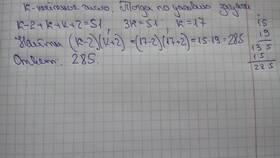 К-натальное число. Тогда по условию задачи
К-2+К+К+2=51 3К=51 К=17
Найти (К-2)(К+2)=(17-2)(17+2)=15·19=285
Ответ. 285.
15
19
135
15
285